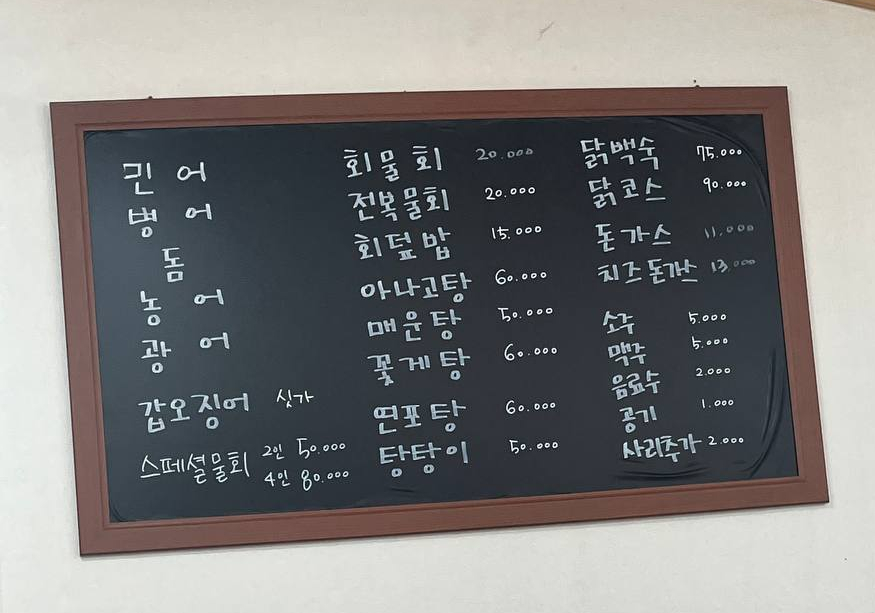 민어
병어
돔
농어
광어
갑오징어 싯가
스페셜물회 2인 50.000
4인 80.000
회물회 20.000
전복물회 20.000
회덮밥 15.000
아나고탕 60.000
매운탕 50.000
꽃게탕 60.000
연포탕 60.000
탕탕이 50.000
닭백숙 75.000
닭코스 90.000
돈가스 11.000
치즈돈가스 13.000
소주 5.000
맥주 5.000
음료수 2.000
공기 1.000
사리추가 2.000